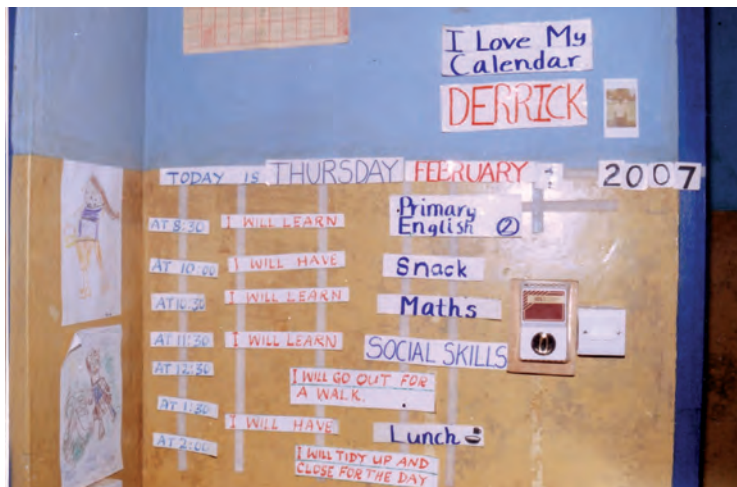 I Love My
Calendar
DERRICK
TODAY IS THURSDAY FEBRUARY 2007
AT 8:30 I WILL LEARN Primary
English 2
AT 10:00 I WILL HAVE Snack
AT 10:30 I WILL LEARN Maths
AT 11:30 I WILL LEARN SOCIAL SKILLS
AT 12:30 I WILL GO OUT FOR
A WALK.
AT 1:30 I WILL HAVE Lunch
AT 2:00 I WILL TIDY UP AND
CLOSE FOR THE DAY